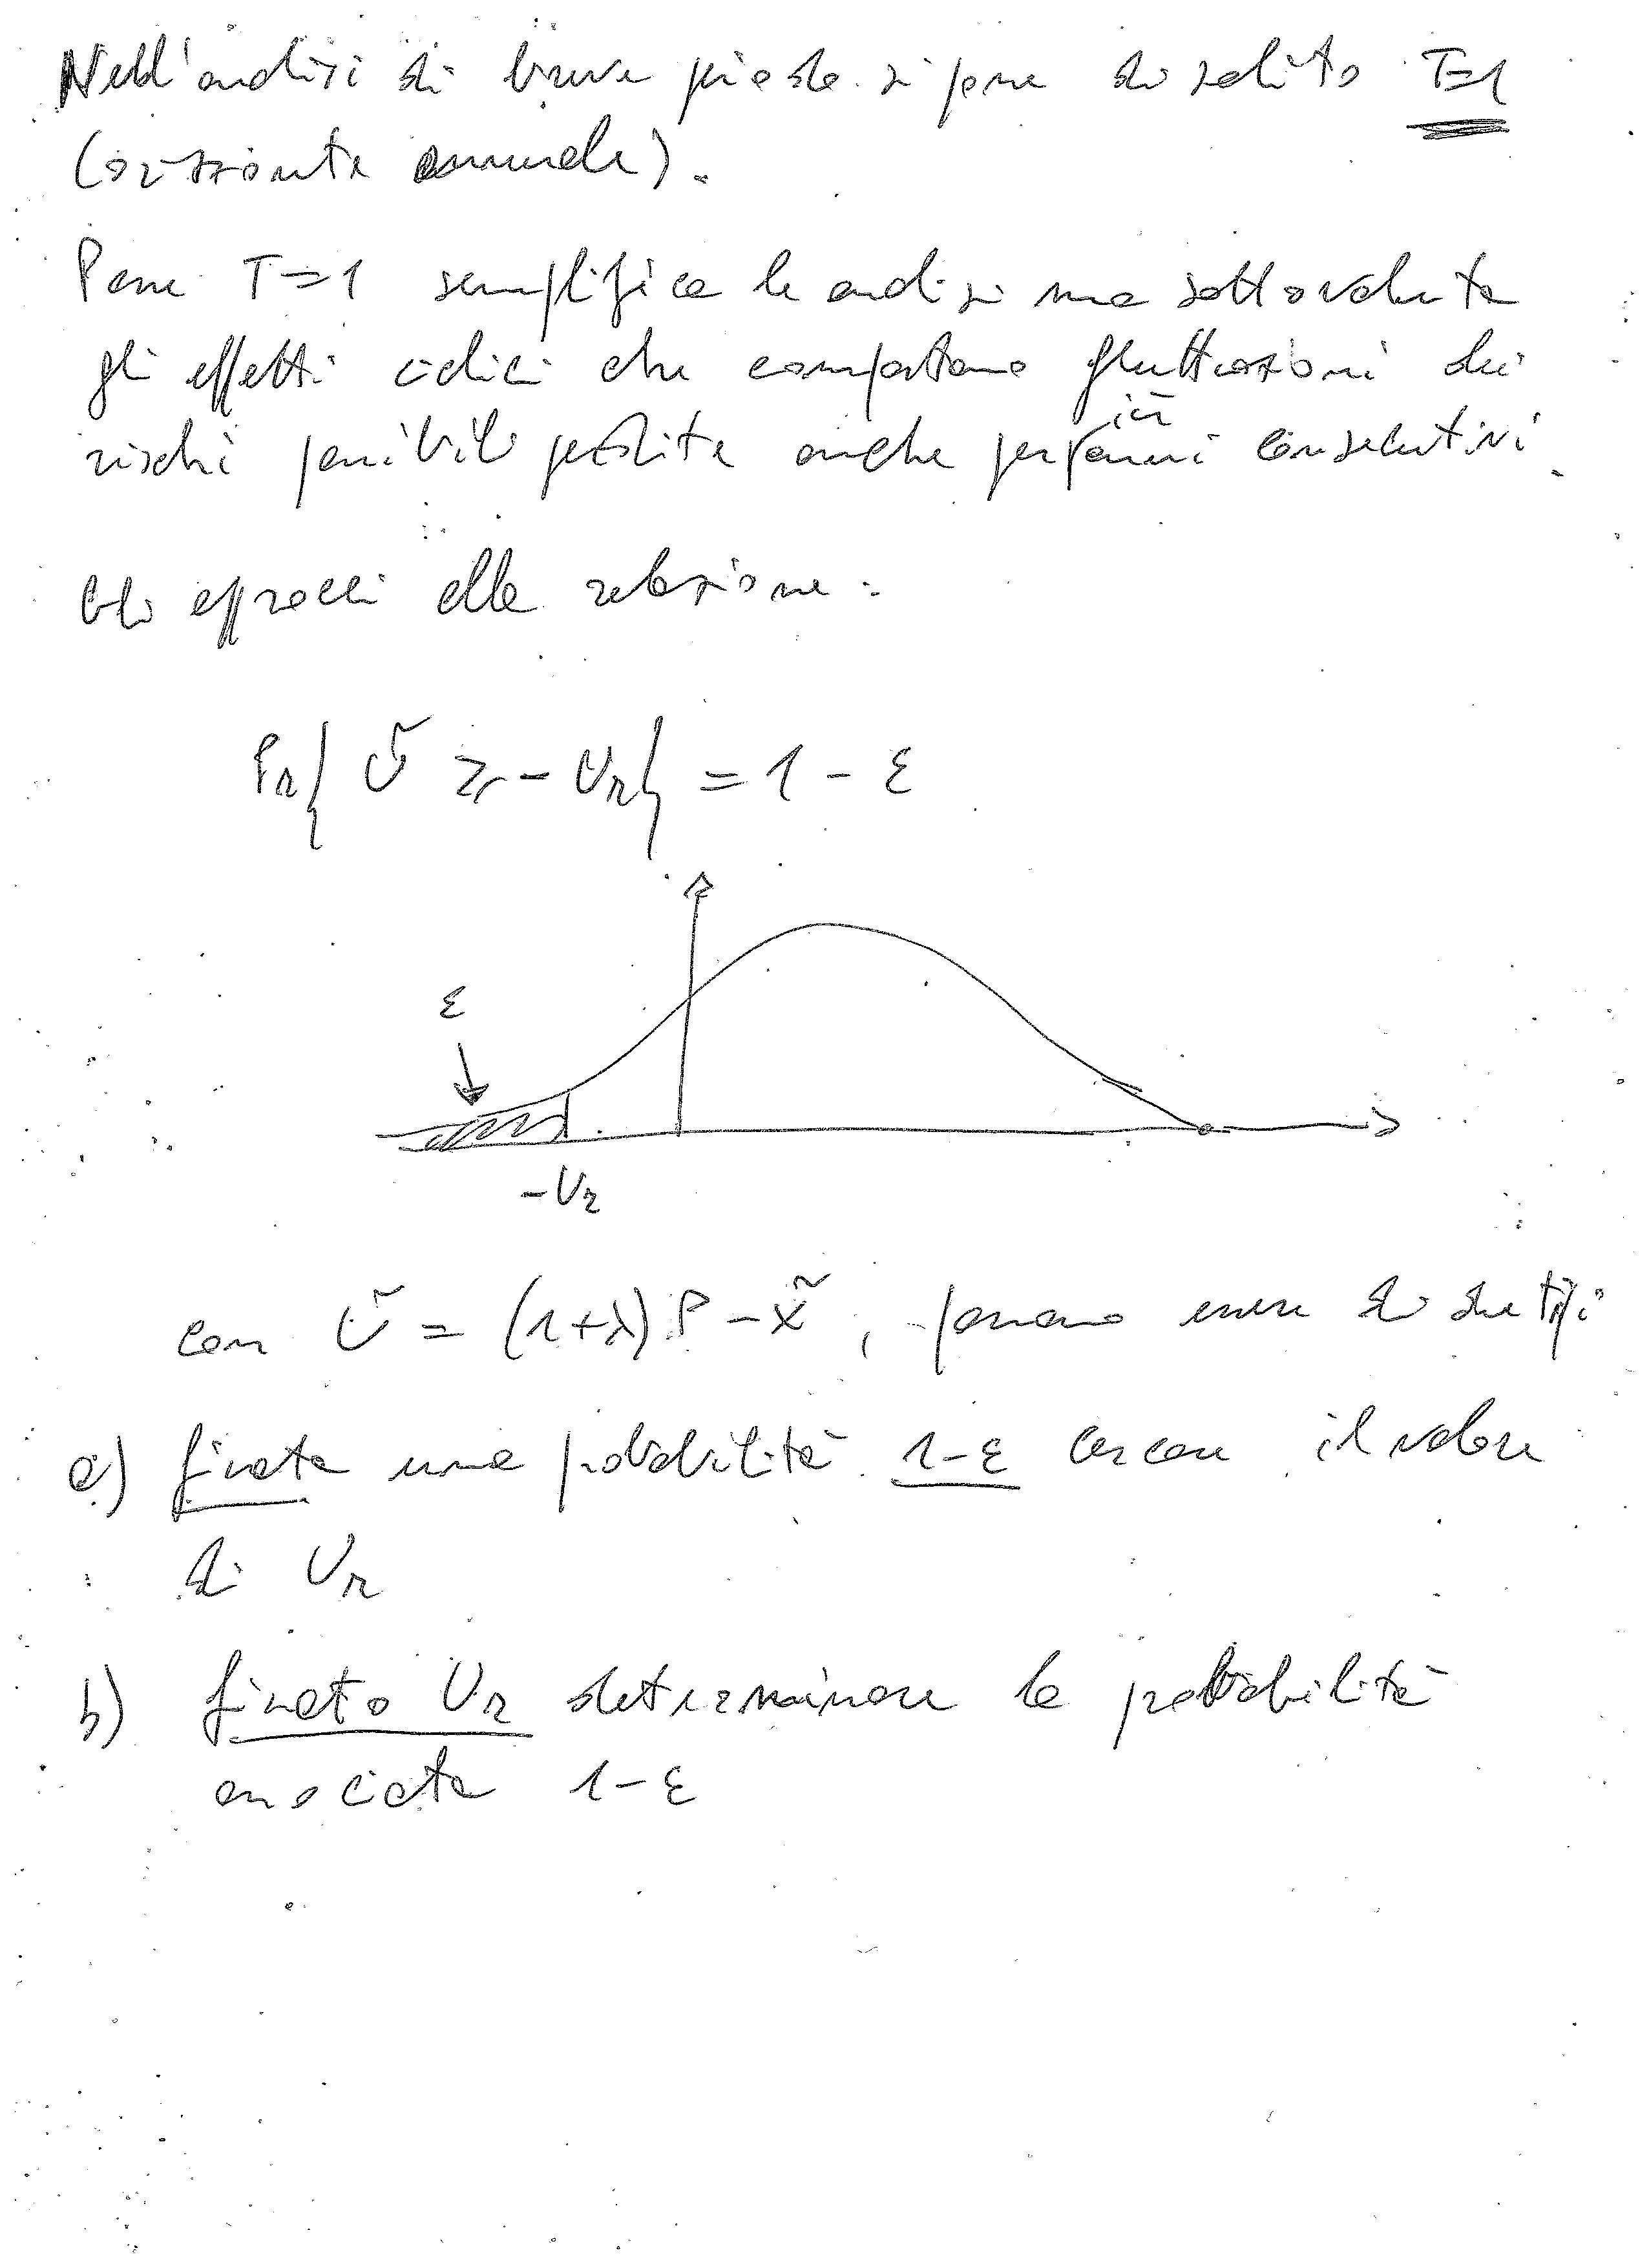 Nell'analisi di breve periodo si pone di solito T=1
(orizzonte annuale).
Porre T=1 semplifica le analisi ma sottovaluta
gli effetti ciclici che comportano fluttuazioni dei
rischi possibili perdite anche per più anni consecutivi.
Gli approcci alla relazione:
Pr{ Ũ ≥ -Ur } = 1 - ε
ε
-Ur
con Ũ = (1+λ)P - X̃, possono essere di due tipi
a) fissata una probabilità 1-ε cercare il valore
di Ur
b) fissato Ur determinare la probabilità
associata 1-ε